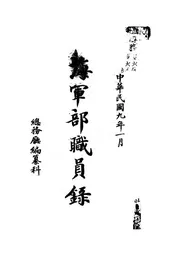 中華民國九年一月
海軍部職員錄
總務廳編纂科